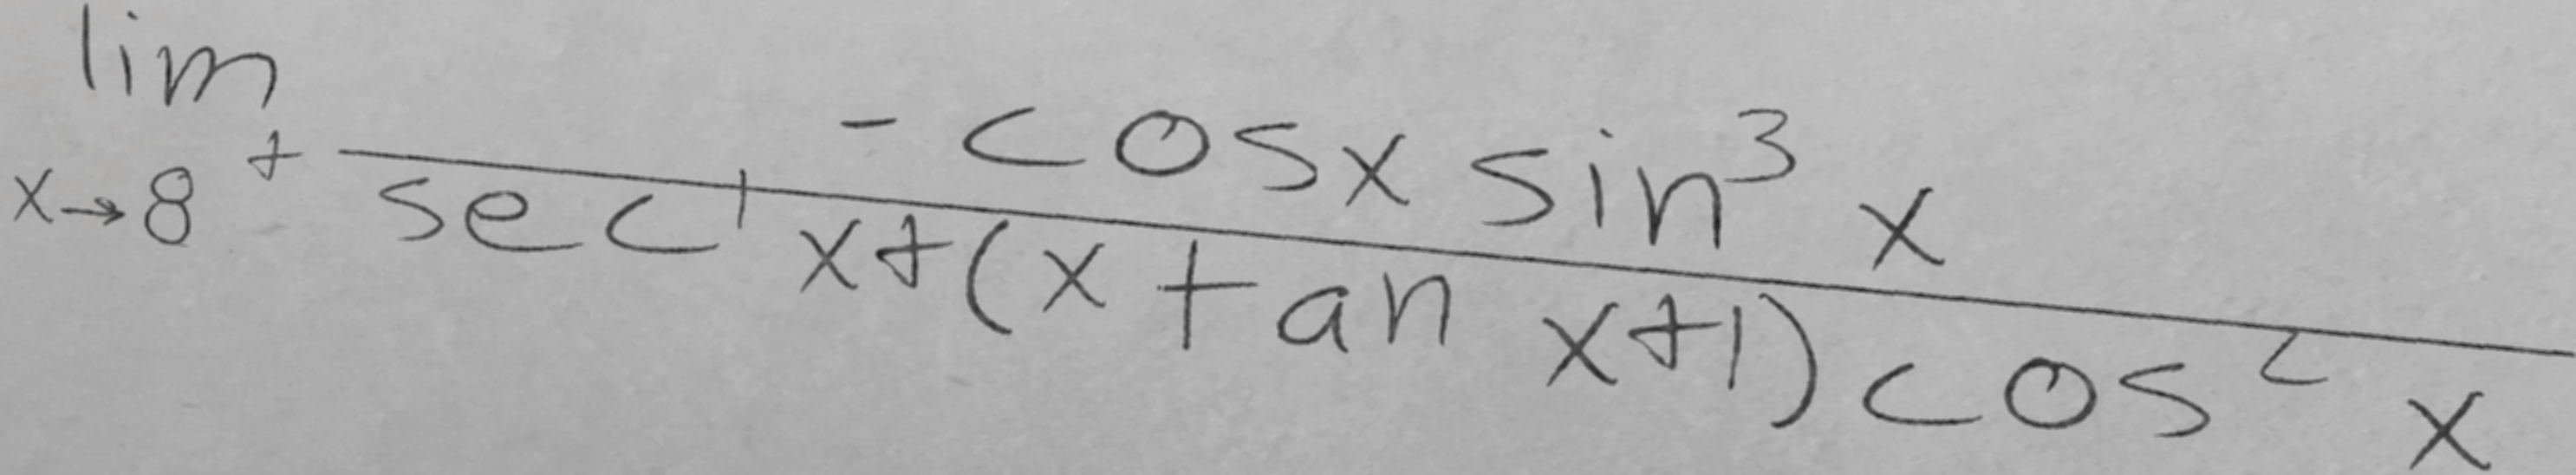 \lim_{x \to 8^+} \frac{-\cos x \sin^3 x}{\sec^1 x + (x \tan x + 1) \cos^2 x}